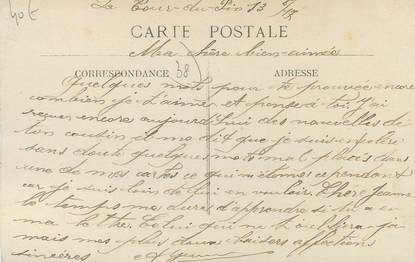 40€
La Tour-du-Pin 13
CARTE POSTALE
Ma chère bien-aimée
CORRESPONDANCE
38
ADRESSE
Quelques mots pour te prouver encore
combien je t'aime et pense à toi. J'ai
reçu encore aujourd'hui des nouvelles de
ton cousin il m'a dit que je suis
sans doute quelques mots mal placés dans
une de mes cartes ce qui cependant
car je suis loin de lui en vouloir. Chère Jeanne
le temps me dure d'apprendre si tu a eu
ma lettre. Celui qui ne t'oubliera ja
mais mes plus doux baisers affections
sincères